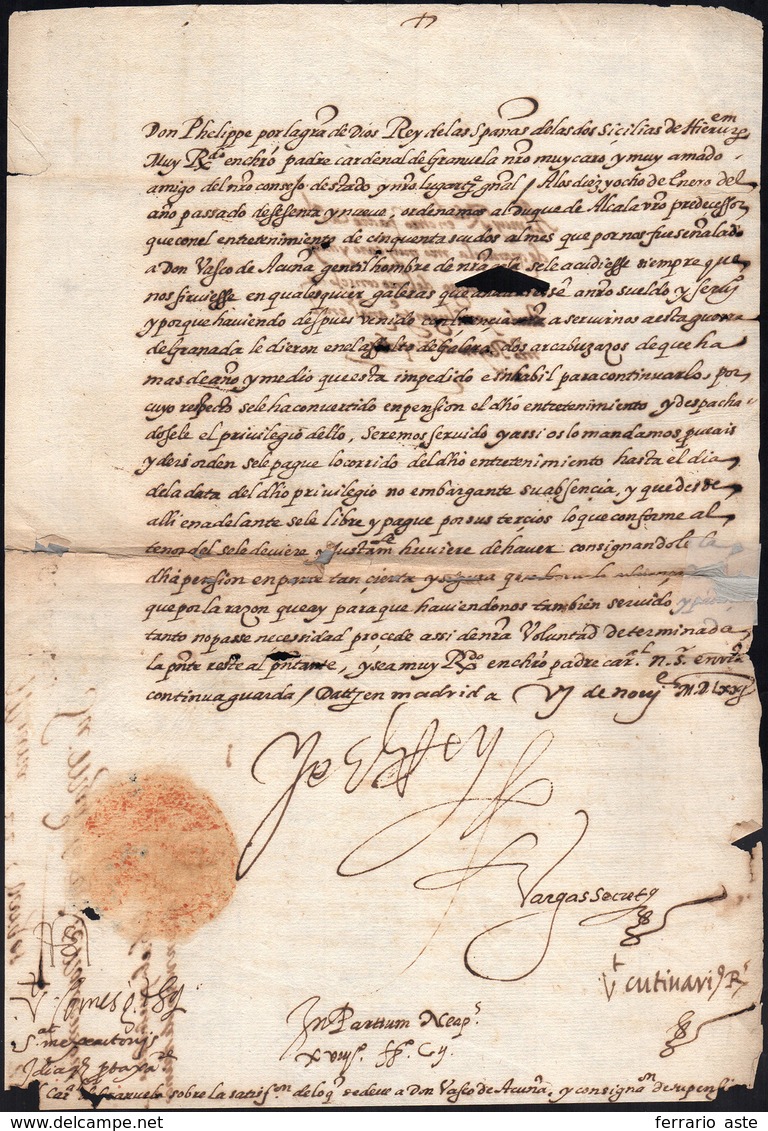 Don Phelippe por la gra de Dios Rey de las Spañas de las dos Sicilias de Hierusm
Muy Rdo en chro padre cardenal de Granuela nro muy caro, y muy amado
amigo del nro consejo destado y nro lugart gnal / A los diez y ocho de Enero del
año passado de sesenta y nueve, ordenamos al Duque de Alcala vro predecessor
que con el entretenimiento de cinquenta scudos al mes que por nos fue señalado
a Don Vasco de Acuña gentilhombre de nra se le acudiesse siempre que
nos sirviesse en qualesquier galeras que a nro sueldo y servi
y porque haviendo despues venido con a servirnos a esta guerra
de Granada le dieron en el assalto de Galera dos arcabuzazos de que ha
mas de año y medio que esta impedido e inhabil para continuarlo, por
cuyo respecto se le ha convertido en pension el dho entretenimiento y despacha
dosele el privilegio dello, Seremos servido y assi os lo mandamos que
y deis orden se le pague lo corrido del dho entretenimiento hasta el dia
de la data del dho privilegio no embargante su absencia, y que desde
alli en adelante se le libre y pague por sus tercios lo que conforme al
tenor del se le deviere y justamte huviere de haver consignandole la
dha pension en parte tan cierta y segura que
que por la razon que ay para que haviendonos tambien servido
tanto no passe necessidad procede assi de nra Voluntad determinada
la pnte reste al pntante, y sea muy Rdo en chro padre carl n. s. en vra
continua guarda / Datt en madrid a vj de nove M.D.lxxj
Yo el Rey
Vargas Secret
Vt cutinari Rs
Vt
In Partium Neaps
Carl de Granuela sobre la satisfon de lo q se deve a Don Vasco de Acuña, y consignaon de su pension
ferrario aste